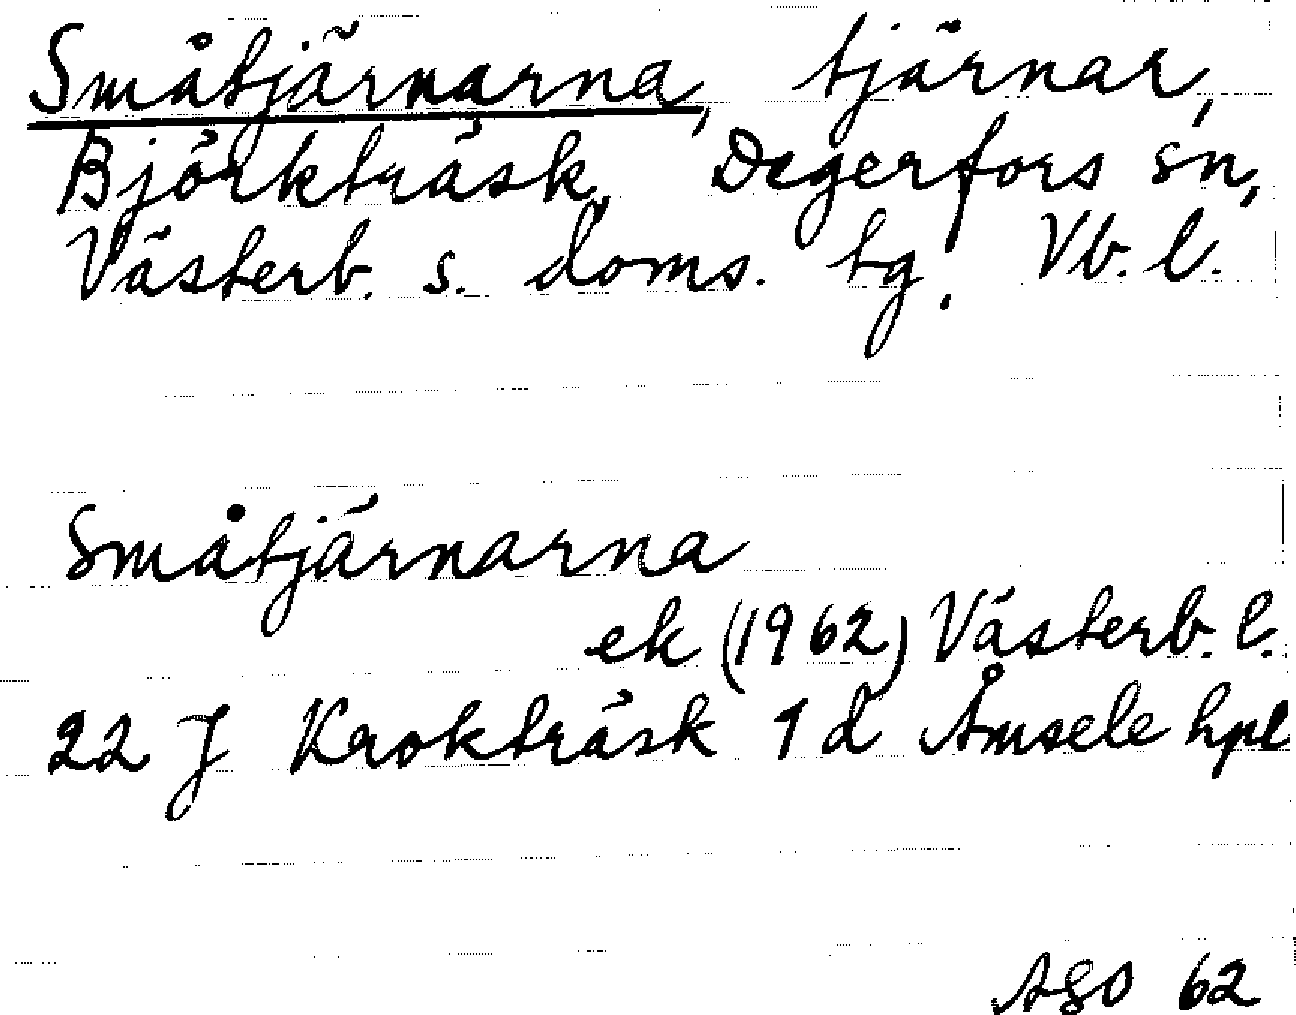 Småtjärnarna, tjärnar,
Björkträsk, Degerfors sn,
Västerb. s. doms. tg, Vb. l.
Småtjärnarna
ek (1962) Västerb. l.
22 J Krokträsk 1 d Åmsele hpl
ASO 62